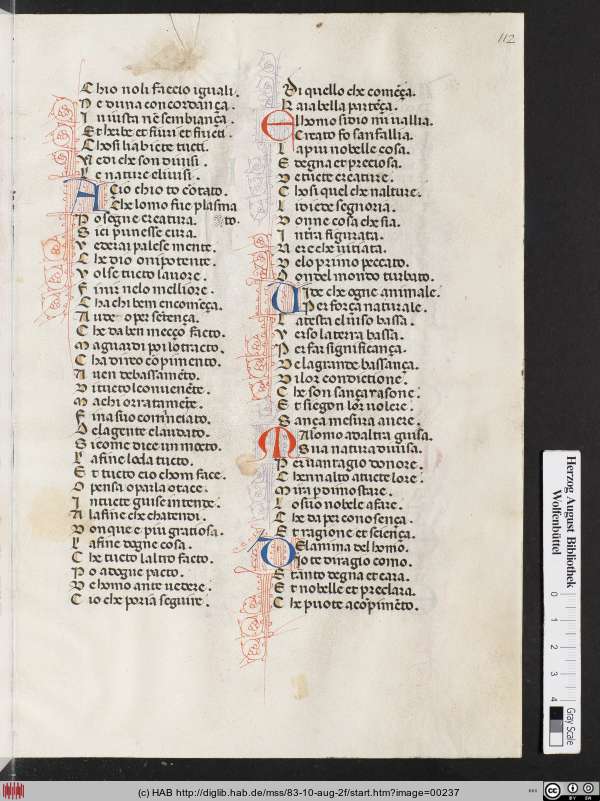 112
Chio noli faccio iguali.
Ne diuna concordança.
In iusta nē sembiança.
Et herbe et fiuri et fructi.
Chosi habiete tucti.
Vedi che son diuisi.
Le nature eliuisi.
Acio chio to cōtato.
Che lomo fue plasma
Po segne creatura. to.
Si ci punesse cura.
Vederai palese mente.
Che dio onipotente.
Volse tucto lauore.
Finir nelo melliore.
Cha chi ben encomēça.
Aude o per sētença.
Che da ben meçço facto.
Ma guardi poi lotracto.
Cha direo cōpimento.
Auen debassamēto.
Di tucto lconuenēte.
Ma chi orratamēte.
Fina suo comīciato.
Dela gente e laudato.
Sicome dice un mocto.
La fine loda tucto.
Et tucto cio chom face.
O pensa o parla o tace.
In tucte guise intende.
Ala fine che chatendi.
Donque e piu gratiosa.
La fine dogne cosa.
Che tucto laltro facto.
Po adogne pacto.
De homo ante uedere.
Cio che poria seguire.
Di quello che comēça.
Raia bella partēça.
Elhomo si dio mi uallia.
Creato fo san fallia.
La piu nobelle cosa.
Et degna et preciosa.
De tucte creature.
Chosi quel che nalture.
Li diete segnoria.
Donne cosa che sia.
In tra figurata.
Vere che uitiata.
Pelo primo peccato.
Don del mondo turbato.
Vide che ogne animale.
Per força naturale.
La testa el uiso bassa.
Verso la terra bassa.
Per far significança.
De la grande bassança.
Di lor condictione.
Che son sança rasone.
Et siegon lor uolere.
Sança mesura auere.
Ma lomo adaltra guisa.
Sua natura diuisa.
Per uantagio donore.
Chenn alto a tucte lore.
Mira per dimostrare.
Lo suo nobele afare.
Che da per conosença.
Et ragione et sciēnça.
Delanima del homo.
Io te diragio como.
E tanto degna et cara.
Et nobelle et preclara.
Che puote a cōpimēto.
Herzog August Bibliothek
Wolfenbüttel
0 1 2 3 4
Gray Scale
(c) HAB http://diglib.hab.de/mss/83-10-aug-2f/start.htm?image=00237
cc BY SA